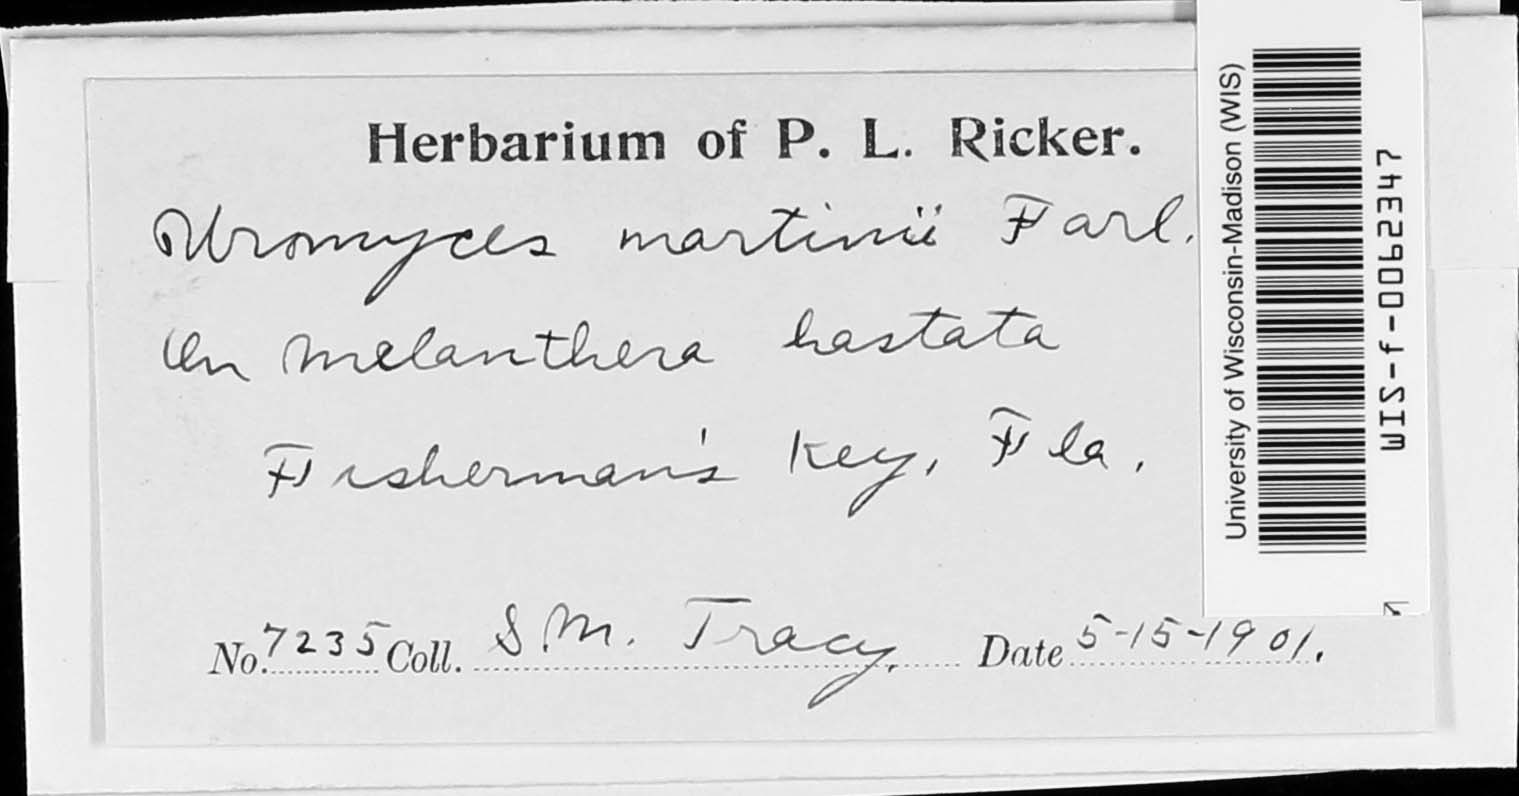 Herbarium of P. L. Ricker.
Uromyces martinii Farl.
On Melanthera hastata
Fisherman's Key, Fla.
No. 7235 Coll. S. M. Tracy. Date 5-15-1901.
University of Wisconsin-Madison (WIS)
WIS-f-0092347